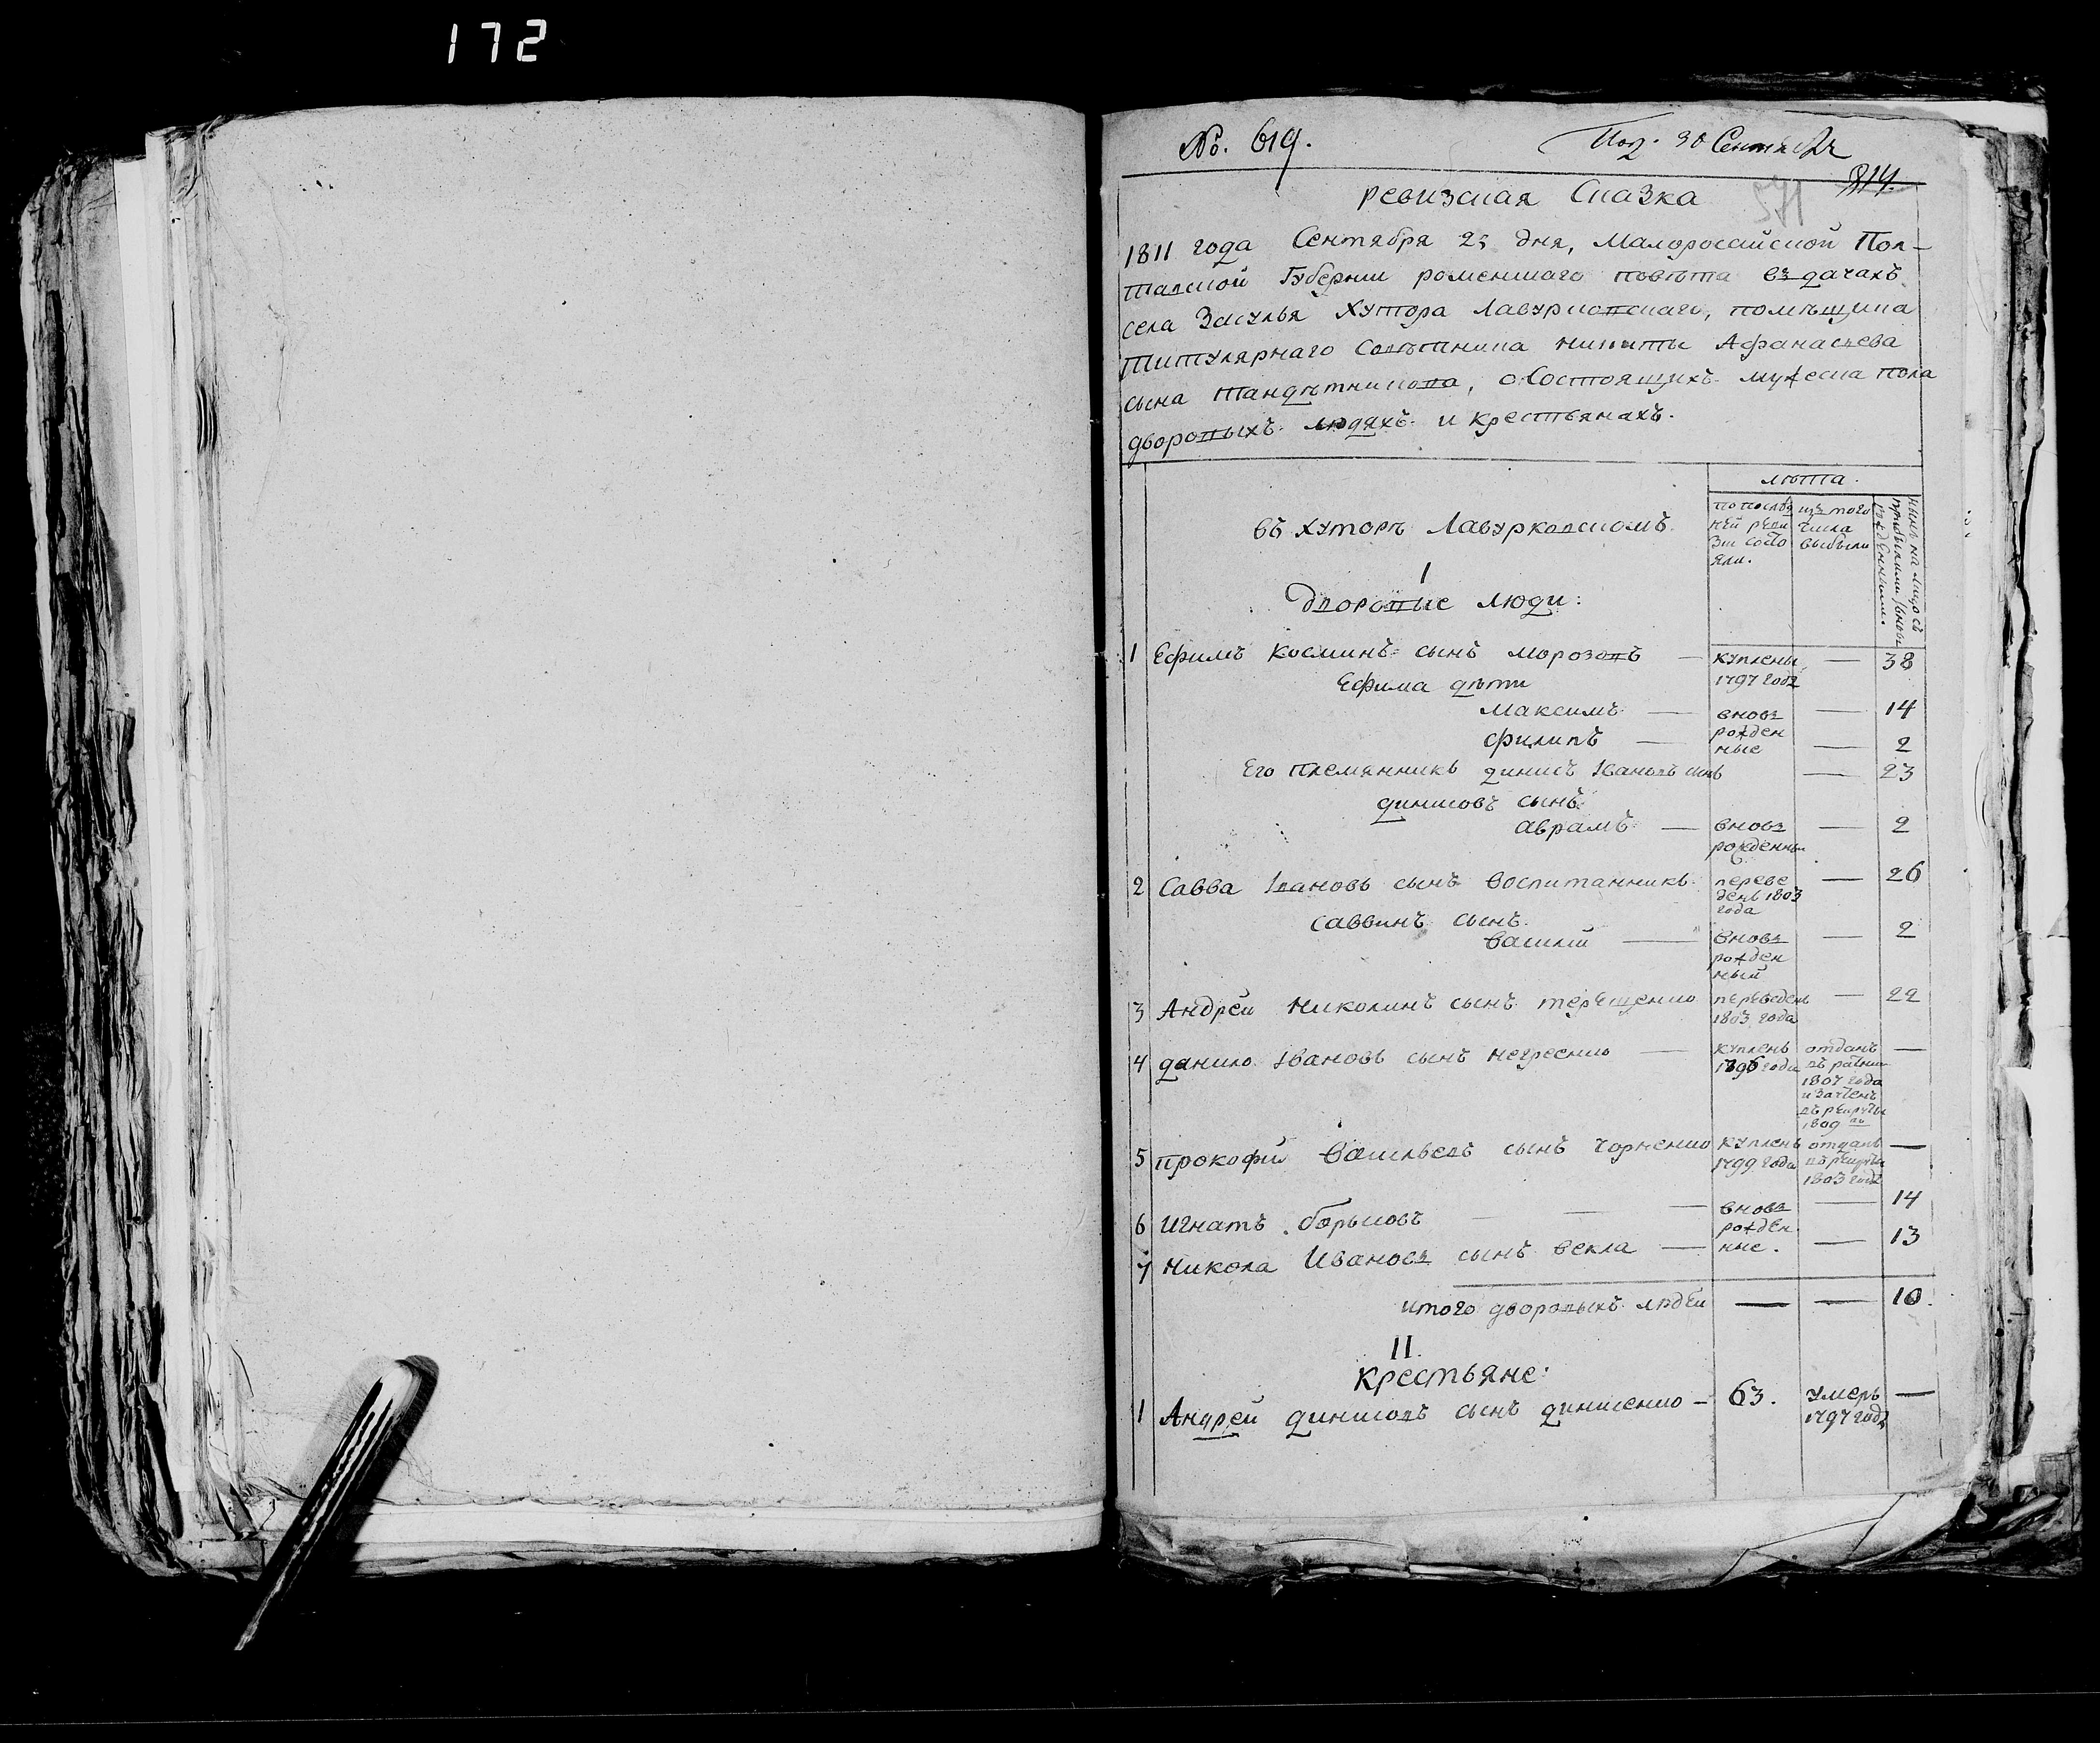 172
No. 619.
Пол. 30 Сентября
814.
571
ревизская Сказка
1811 года Сентября 25 дня, Малоросайской Пол-
тавской Губернии роменскаго повѣта въ дачахъ
села Засулья Хутора Лавурковскаго, помѣщика
титулярнаго Совѣтника Никиты Афанасьева
сына, о Состоящихъ мужеска пола
дворовыхъ людяхъ и крестьянахъ.
лѣта.
въ хуторѣ Лавурковскомъ
по послѣд
ней реви
зіи состо
яли.
изъ того
числа
выбыли
нынѣ на лицо съ
прибылыми и вновь
рожденными.
I
Дворовые люди:
1 Ефимъ косминъ сынъ морозовъ — куплены — 38
1797 года
Ефима дѣти
Максимъ — вновь — 14
филипъ — рожден
ные — 2
Его племянникъ динисъ Ивановъ сынъ — 23
динисовъ сынъ
аврамъ — вновь — 2
рожденны
2 Савва Ивановъ сынъ воспитанникъ переве — 26
денъ 1803
года
саввинъ сынъ
василій — вновь — 2
рожден
ный
3 Андрей Николинъ сынъ терещенко переведенъ — 22
1803 года
4 данило Ивановъ сынъ негреенко — купленъ отданъ —
1796 года въ ратники
1807 года
и зачтенъ
въ рекруты
1809 го
5 прокофій васильевъ сынъ чорненко купленъ отданъ —
1799 года въ рекруты
1803 года
6 игнатъ борисовъ — — — вновь — 14
рожден
7 Никола Ивановъ сынъ векла — ные. — 13
итого дворовыхъ людей — — 10.
II.
крестьяне:
1 Андрей динисовъ сынъ динисенко — 63. умеръ —
1797 года